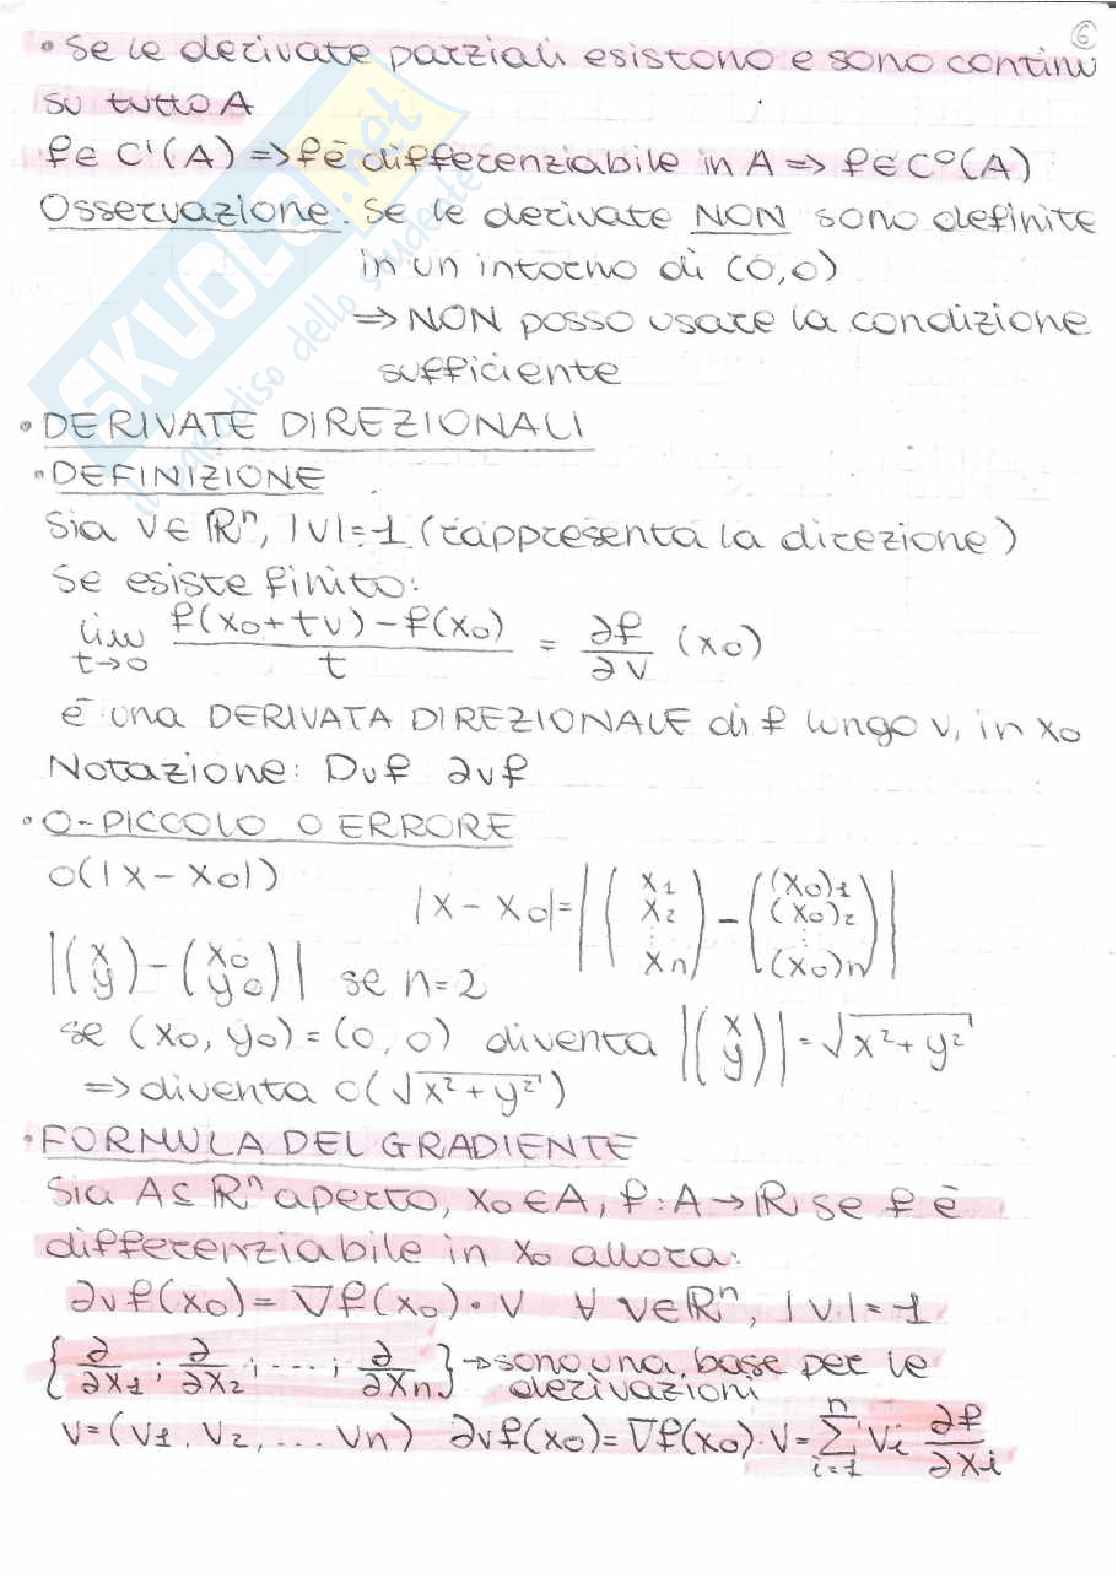 6
• Se le derivate parziali esistono e sono continu
su tutto A
f ∈ C¹(A) => f è differenziabile in A => f ∈ C⁰(A)
Osservazione. Se le derivate NON sono definite
in un intorno di (0,0)
=> NON posso usare la condizione
sufficiente
• DERIVATE DIREZIONALI
• DEFINIZIONE
Sia v ∈ ℝⁿ, |v|=1 (rappresenta la direzione)
Se esiste finito:
lim t→0 (f(x₀+tv) - f(x₀))/t = ∂f/∂v (x₀)
è una DERIVATA DIREZIONALE di f lungo v, in x₀
Notazione: Dvf ∂vf
• O-PICCOLO O ERRORE
o(|x-x₀|)
|x-x₀| = |(x₁ x₂ ⋮ xn) - ((x₀)₁ (x₀)₂ ⋮ (x₀)n)|
|(x y) - (x₀ y₀)| se n=2
se (x₀, y₀) = (0,0) diventa |(x y)| = √(x²+y²)
=> diventa o(√(x²+y²))
• FORMULA DEL GRADIENTE
Sia A ⊆ ℝⁿ aperto, x₀ ∈ A, f: A → ℝ se f è
differenziabile in x₀ allora:
∂vf(x₀) = ∇f(x₀) · v ∀ v ∈ ℝⁿ, |v| = 1
{∂/∂x₁ ; ∂/∂x₂ ; ... ; ∂/∂xn} → sono una base per le
derivazioni
v = (v₁, v₂, ... vn) ∂vf(x₀) = ∇f(x₀) · v = Σ i=1 n vi ∂f/∂xi
SKUOLA.net
il paradiso dello studente